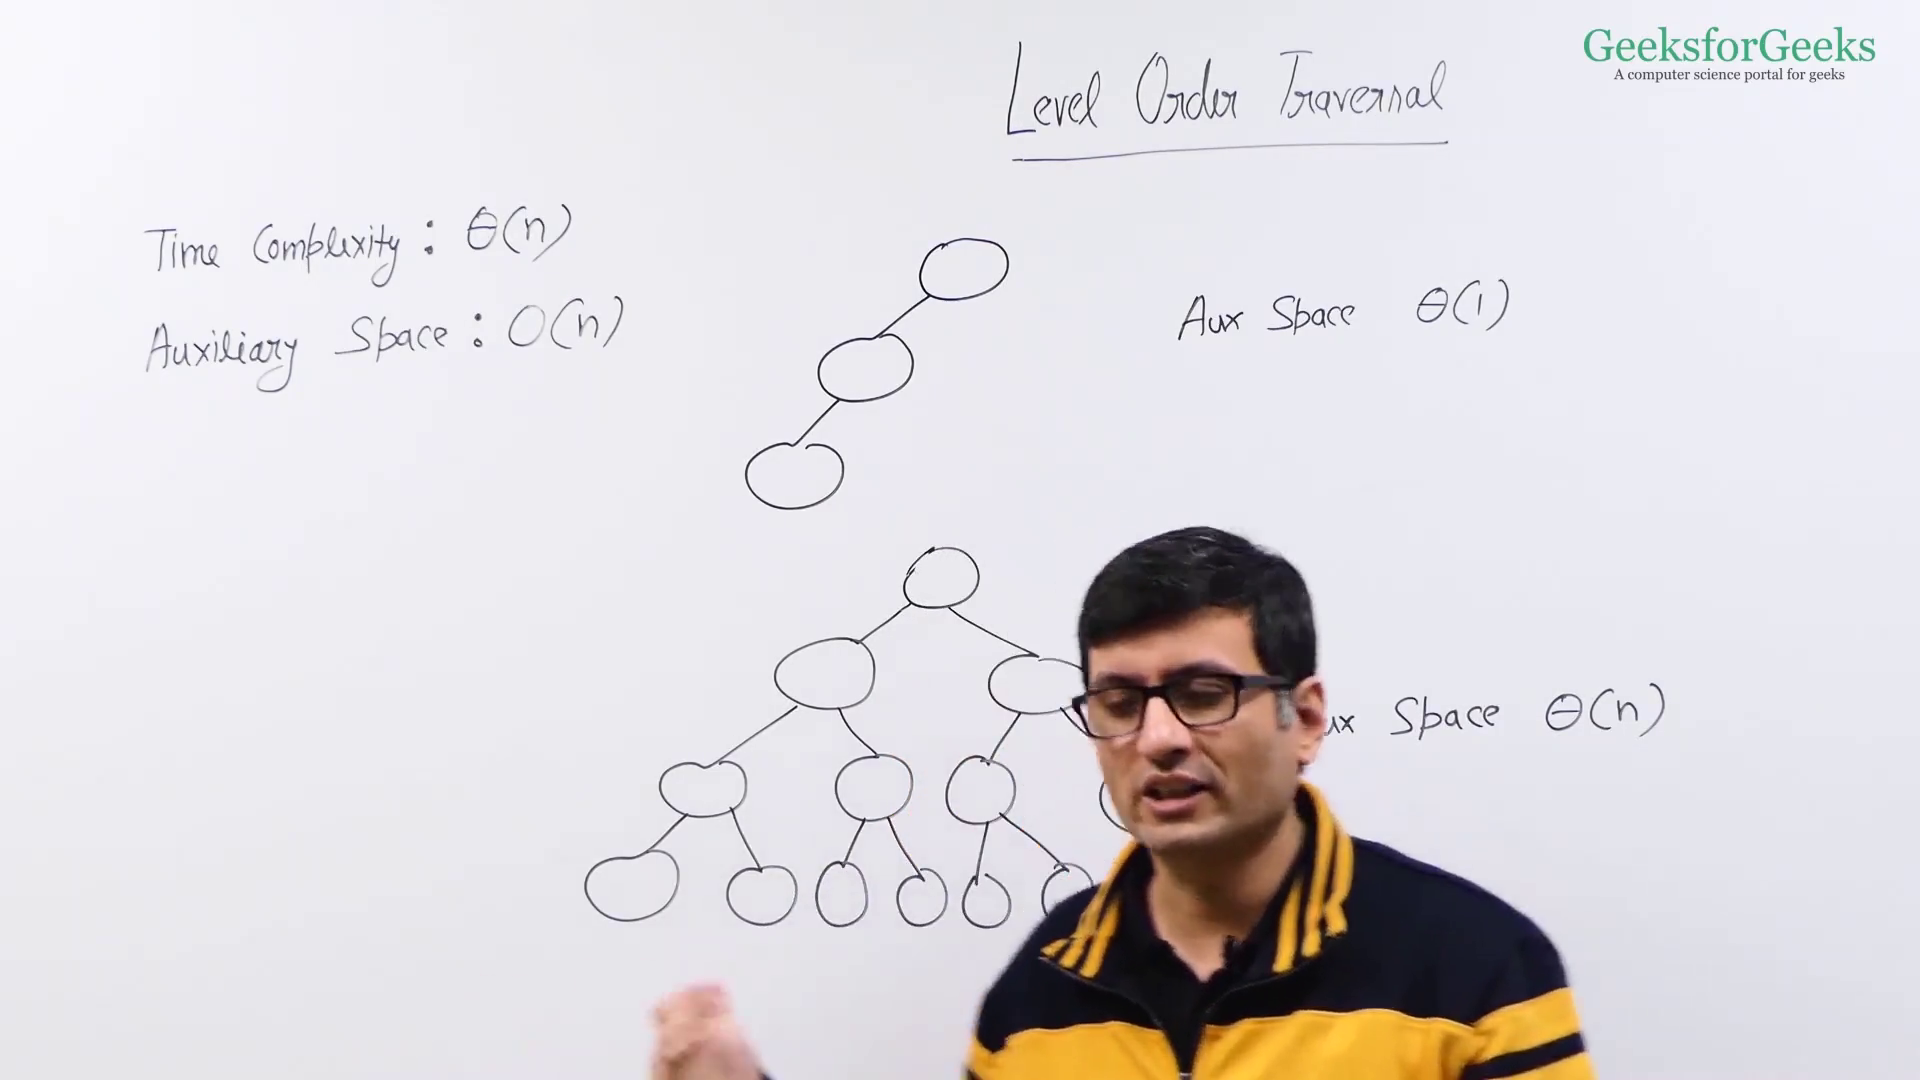 GeeksforGeeks
A computer science portal for geeks
Level Order Traversal
Time Complexity : θ(n)
Auxiliary Space : O(n)
Aux Space θ(1)
Space θ(n)